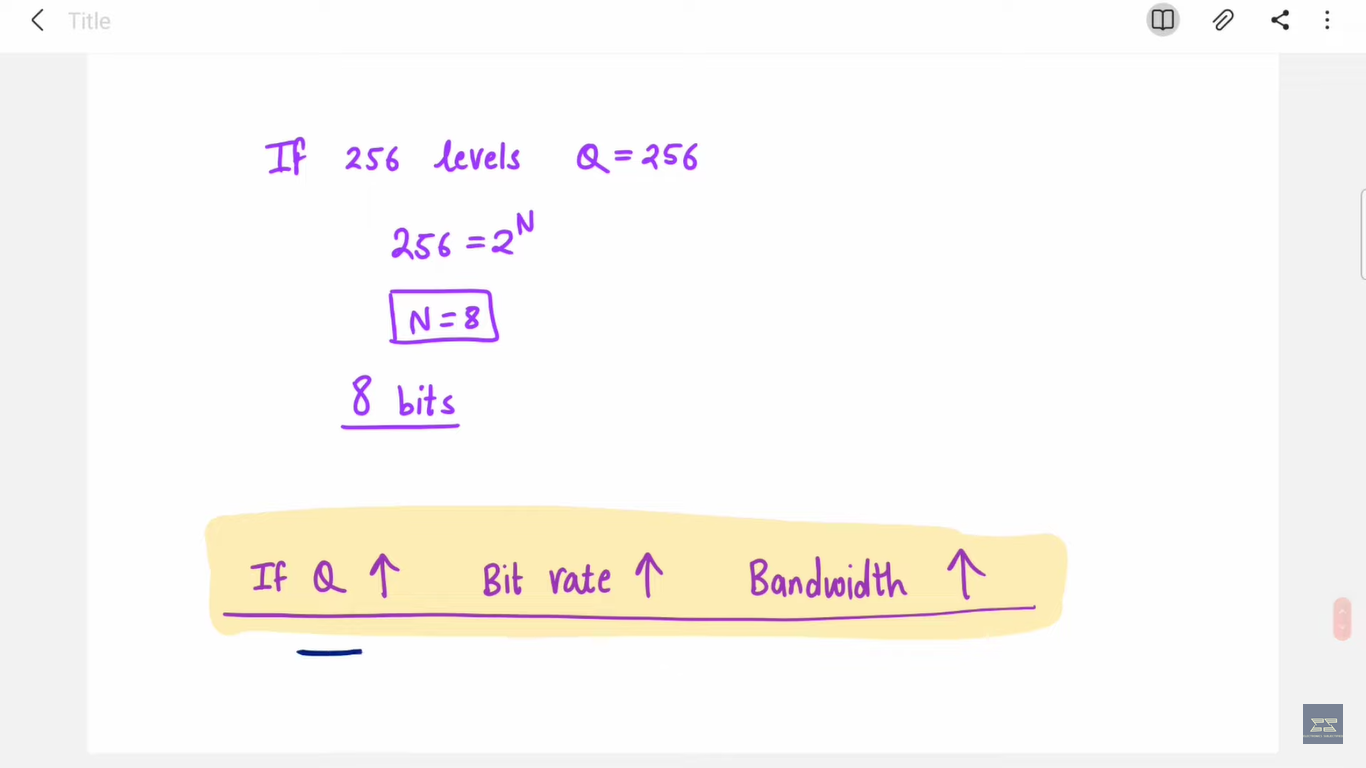 Title
If 256 levels Q = 256
256 = 2^N
N = 8
8 bits
If Q ↑ Bit rate ↑ Bandwidth ↑